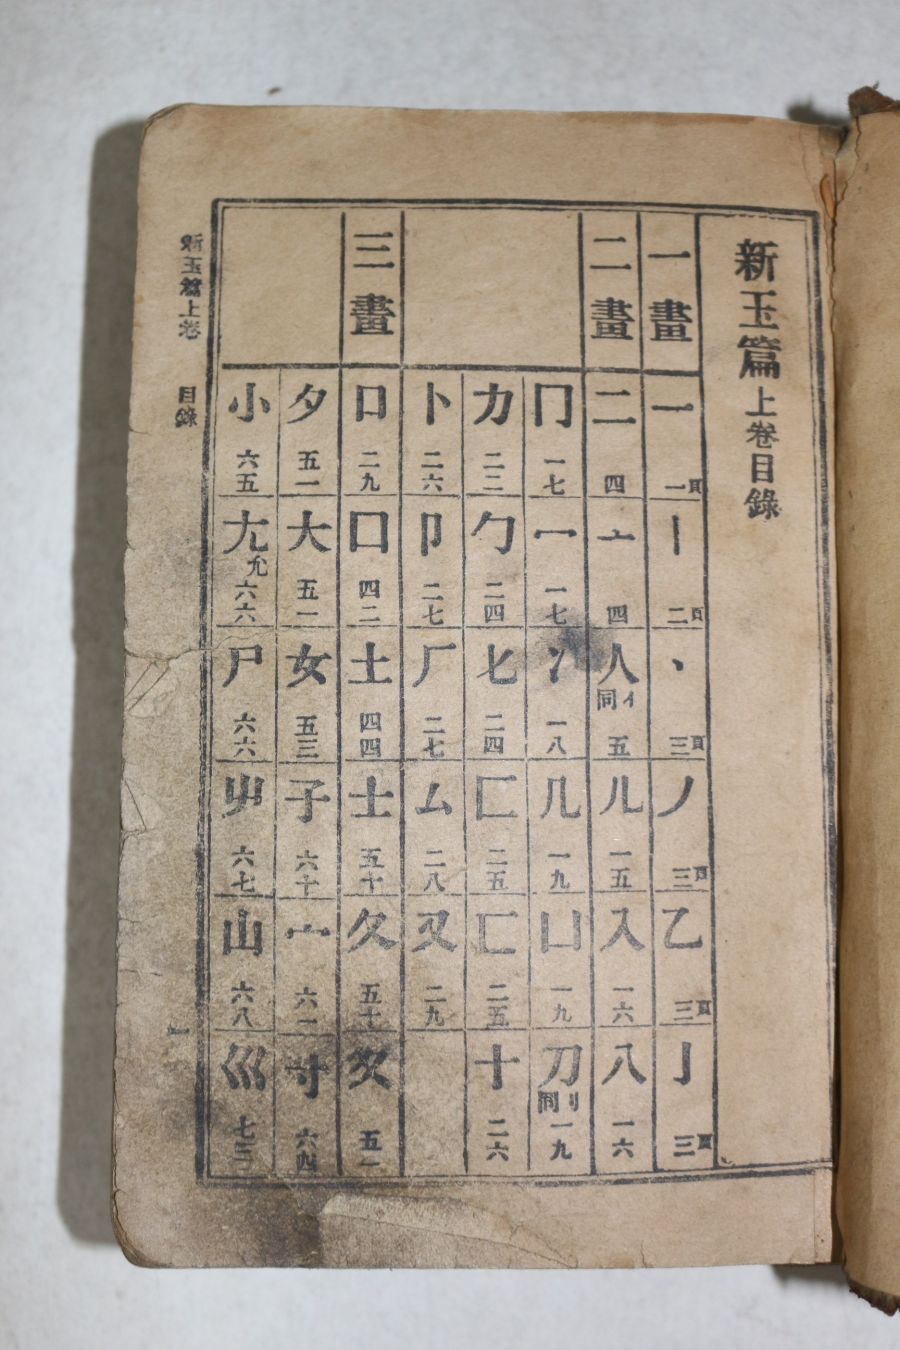 新玉篇上卷目錄
一畫
一 一頁
丨 二頁
丶 三頁
丿 三頁
乙 三頁
亅 三頁
二畫
二 四
亠 四
人 亻同 五
儿 一五
入 一六
八 一六
冂 一七
冖 一七
冫 一八
几 一九
凵 一九
刀 刂同 一九
力 二二
勹 二四
匕 二四
匚 二五
匸 二五
十 二六
卜 二六
卩 二七
厂 二七
厶 二八
又 二九
三畫
口 二九
囗 四二
土 四四
士 五十
夂 五十
夊 五一
夕 五一
大 五一
女 五三
子 六十
宀 六一
寸 六四
小 六五
尢 尣 六六
尸 六六
屮 六七
山 六八
巛 七三
新玉篇上卷 目錄
一